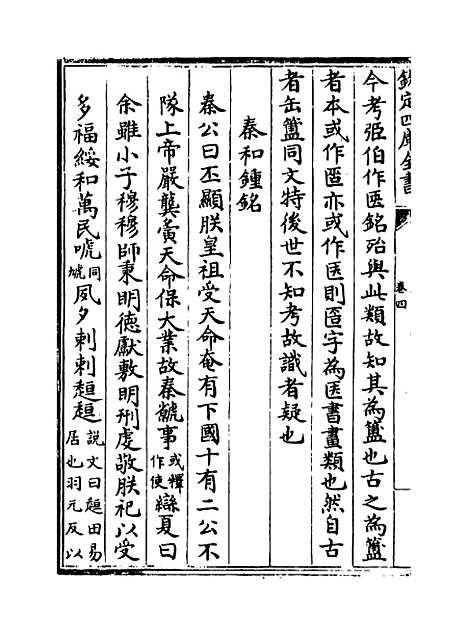 欽定四庫全書
卷四
今考弫伯作医銘殆與此類故知其為簠也古之為簠
者本或作匼亦或作医則匼字為医書畫類也然自古
者缶簠同文特後世不知考故識者疑也
秦和鍾銘
秦公曰丕顯朕皇祖受天命奄有下國十有二公不
隊上帝嚴龔夤天命保大業故秦虩事或釋作使䜌夏曰
余雖小子穆穆師秉明德獻敷明刑虔敬朕祀以受
多福綏和萬民唬同墟夙夕剌剌趄趄說文曰趄田易居也羽元反以